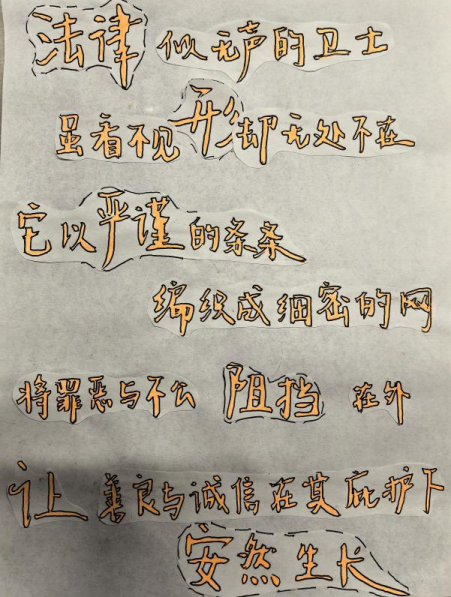 法律似无声的卫士
虽看不见形却无处不在
它以严谨的条条
编织成细密的网
将罪恶与不公阻挡在外
让善良与诚信在其庇护下
安然生长